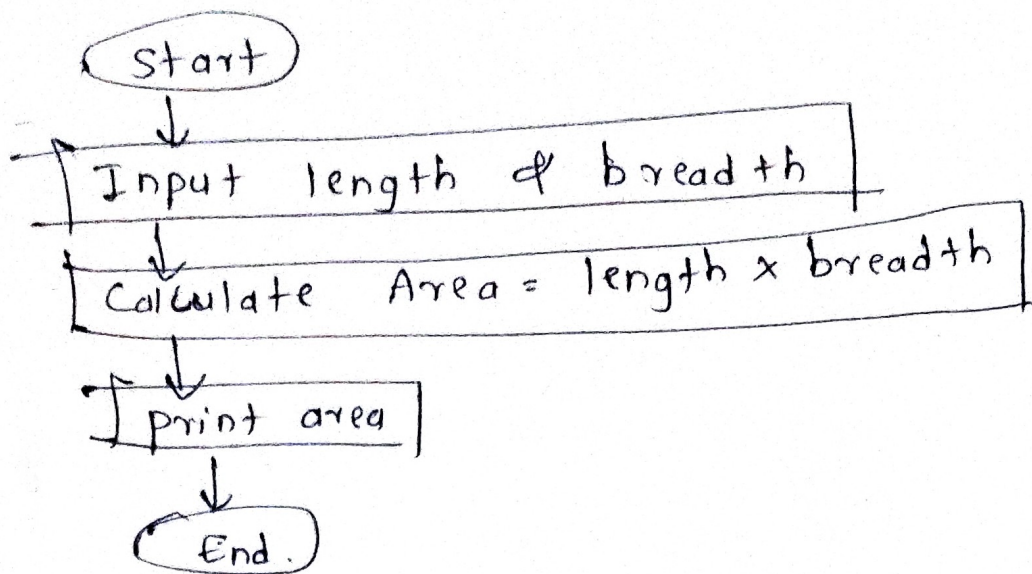 Start
Input length & breadth
Calculate Area = length x breadth
print area
End.